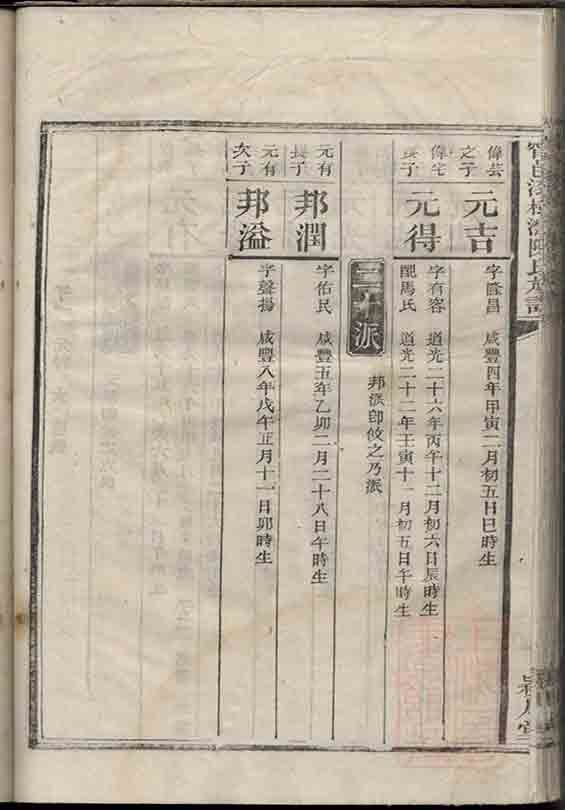 偉芸之子
元吉
字隆昌 咸豐四年甲寅二月初五日巳時生
偉宅長子
元得
字有容 道光二十六年丙午十二月初六日辰時生
配馬氏 道光二十二年壬寅十一月初五日午時生
三十派
邦派即攸之乃派
元有長子
邦潤
字佑民 咸豐五年乙卯二月二十八日午時生
元有次子
邦溢
字聲揚 咸豐八年戊午正月十一日卯時生